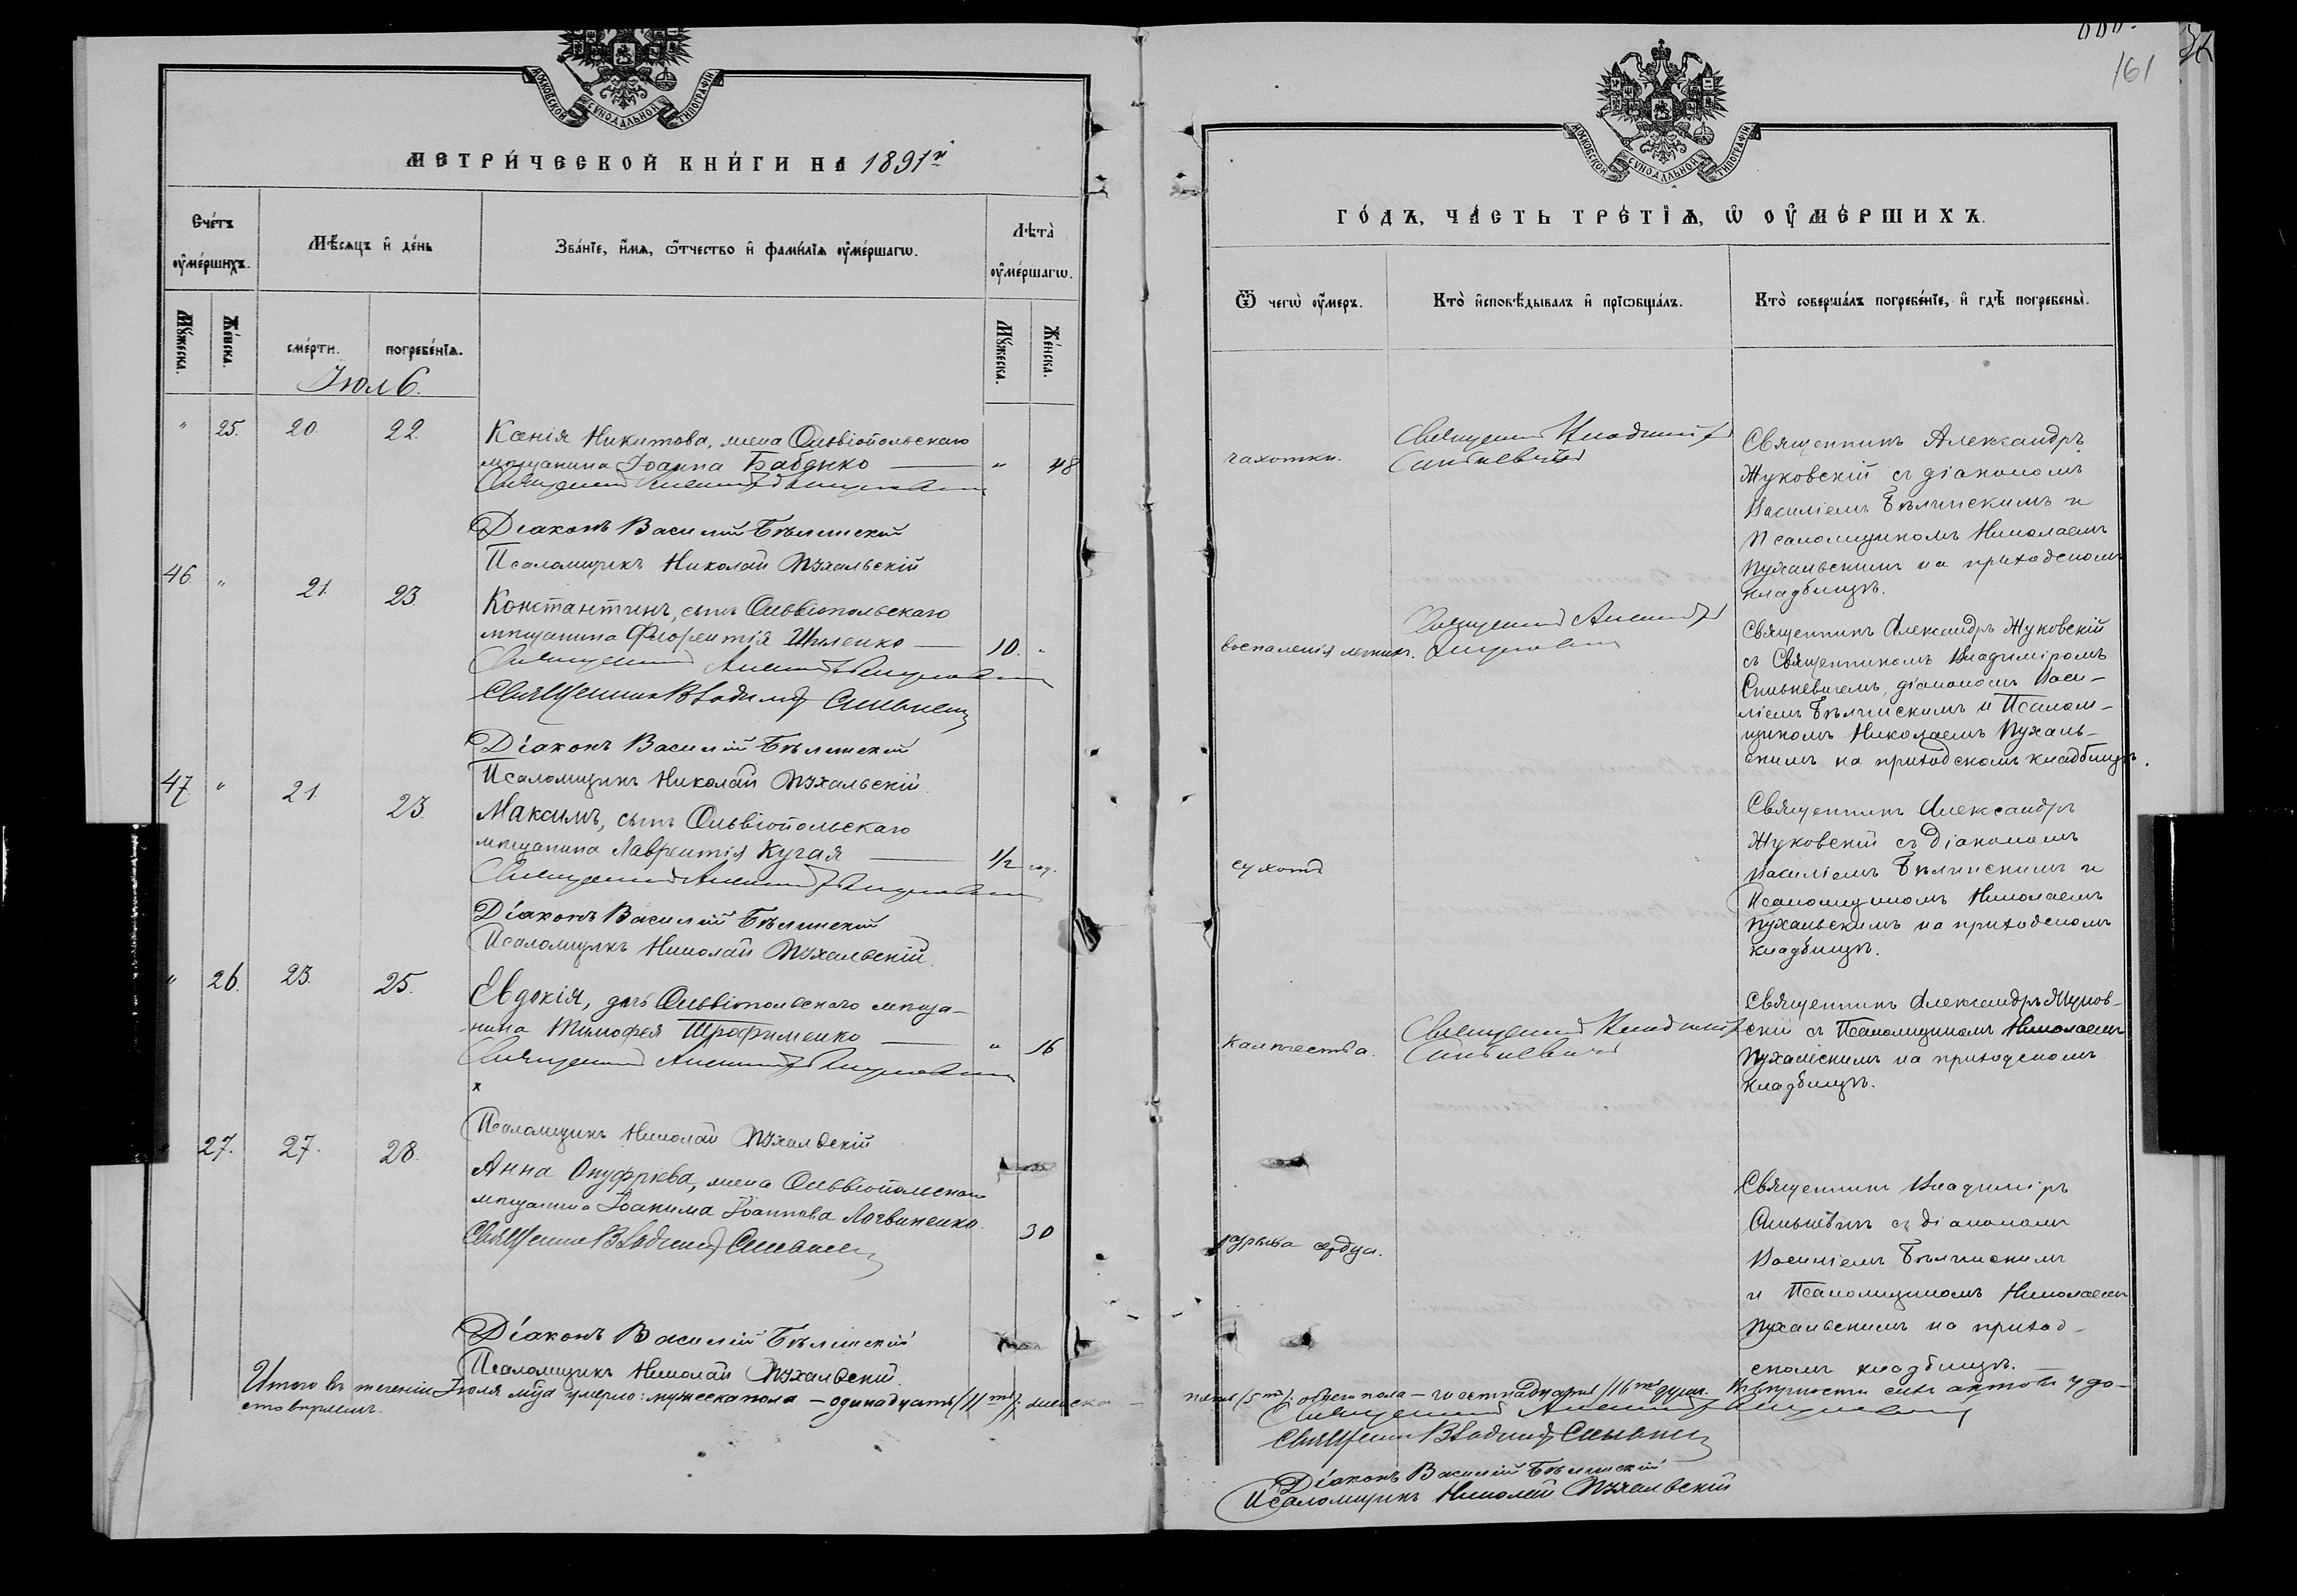 МОСКОВСКОЙ СѴНОДАЛЬНОЙ ТИПОГРАФІИ
МЕТРИ́ЧЕСКОЙ КНИ́ГИ НА 1891й
Сче́тъ оу҆ме́ршихъ.
Мѣ́сяцъ и҆ де́нь
Зва́нїе, и҆́мѧ, ѻ҆́тчество и҆ фами́лїѧ оу҆ме́ршагѡ.
Лѣта̀ оу҆ме́ршагѡ.
Мꙋ́жеска.
Же́нска.
сме́рти.
погребе́нїѧ.
Мꙋ́жеска.
Же́нска.
Іюль.
" 25. 20. 22.
Ксенія Никитова, жена Ольвіопольскаго
мѣщанина Іоанна Бабенко — " 48
Діаконъ Василій Бѣлинскій
Псаломщикъ Николай Пухальскій
46 " 21. 23.
Константинъ, сынъ Ольвіопольскаго
мѣщанина Флорентія Шпленко — 10. "
Священникъ Владиміръ Синькевичъ
Діаконъ Василій Бѣлинскій
Псаломщикъ Николай Пухальскій.
47 " 21. 23.
Максимъ, сынъ Ольвіопольскаго
мѣщанина Лаврентія Кучая — 1/2 год.
Діаконъ Василій Бѣлинскій
Псаломщикъ Николай Пухальскій.
" 26. 23. 25.
Евдокія, дочь Ольвіопольскаго мѣща-
нина Тимофея Трофименко — " 16
Псаломщикъ Николай Пухальскій
" 27. 27. 28.
Анна Онуфріева, жена Ольвіопольскаго
мѣщанина Іоакима Іоаннова Логвиненко. 30
Священникъ Владиміръ Синькевичъ
Діаконъ Василій Бѣлинскій
Псаломщикъ Николай Пухальскій.
Итого въ теченіи Іюля м-ца умерло: мужеска пола — одинадцать (11ть); женска —
стовѣряемъ.
161
МОСКОВСКОЙ СѴНОДАЛЬНОЙ ТИПОГРАФІИ
ГО́ДЪ, ЧА́СТЬ ТРЕ́ТЇѦ, Ѡ҆ ОУ҆МЕ́РШИХЪ.
Ѿ чегѡ̀ оу҆́меръ.
Кто̀ и҆сповѣ́дывалъ и҆ прїѡбща́лъ.
Кто̀ соверша́лъ погребе́нїе, и҆ гдѣ̀ погребены̀.
чахотки.
Священникъ Владиміръ
Синькевичъ
Священникъ Александръ
Жуковскій съ діакономъ
Василіемъ Бѣлинскимъ и
Псаломщикомъ Николаемъ
Пухальскимъ на приходскомъ
кладбищѣ.
воспаленія легкихъ.
Священникъ Александръ
Священникъ Александръ Жуковскій
съ Священникомъ Владиміромъ
Синькевичемъ, діакономъ Васи-
ліемъ Бѣлинскимъ и Псалом-
щикомъ Николаемъ Пухаль-
скимъ на приходскомъ кладбищѣ.
сухотъ
Священникъ Александръ
Жуковскій съ Діакономъ
Василіемъ Бѣлинскимъ и
Псаломщикомъ Николаемъ
Пухальскимъ на приходскомъ
кладбищѣ.
Священникъ Владиміръ
Синькевичъ
Священникъ Александръ Жуков-
скій съ Псаломщикомъ Николаемъ
Пухальскимъ на приходскомъ
кладбищѣ.
сердца.
Священникъ Владиміръ
Синькевичъ съ діакономъ
Василіемъ Бѣлинскимъ
и Псаломщикомъ Николаемъ
Пухальскимъ на приход-
скомъ кладбищѣ.
пять (5ть); обоего пола — шестнадцать (16ть) душъ. Въ вѣрности сихъ актовъ удо-
Священникъ Владиміръ Синькевичъ
Діаконъ Василій Бѣлинскій
Псаломщикъ Николай Пухальскій